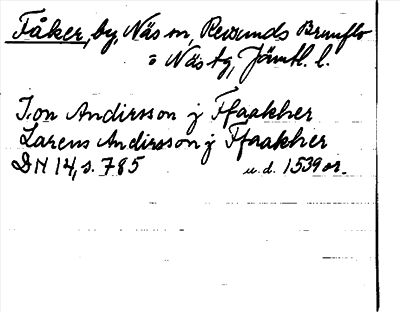 Fåker, by, Näs sn, Revsunds Brunflo
o Näs tg, Jämtl. l.
Jon Andirsson j Ffaakher
Larens Andirsson j Ffaakher
DN 14, s. 785 u.d. 1539 or.